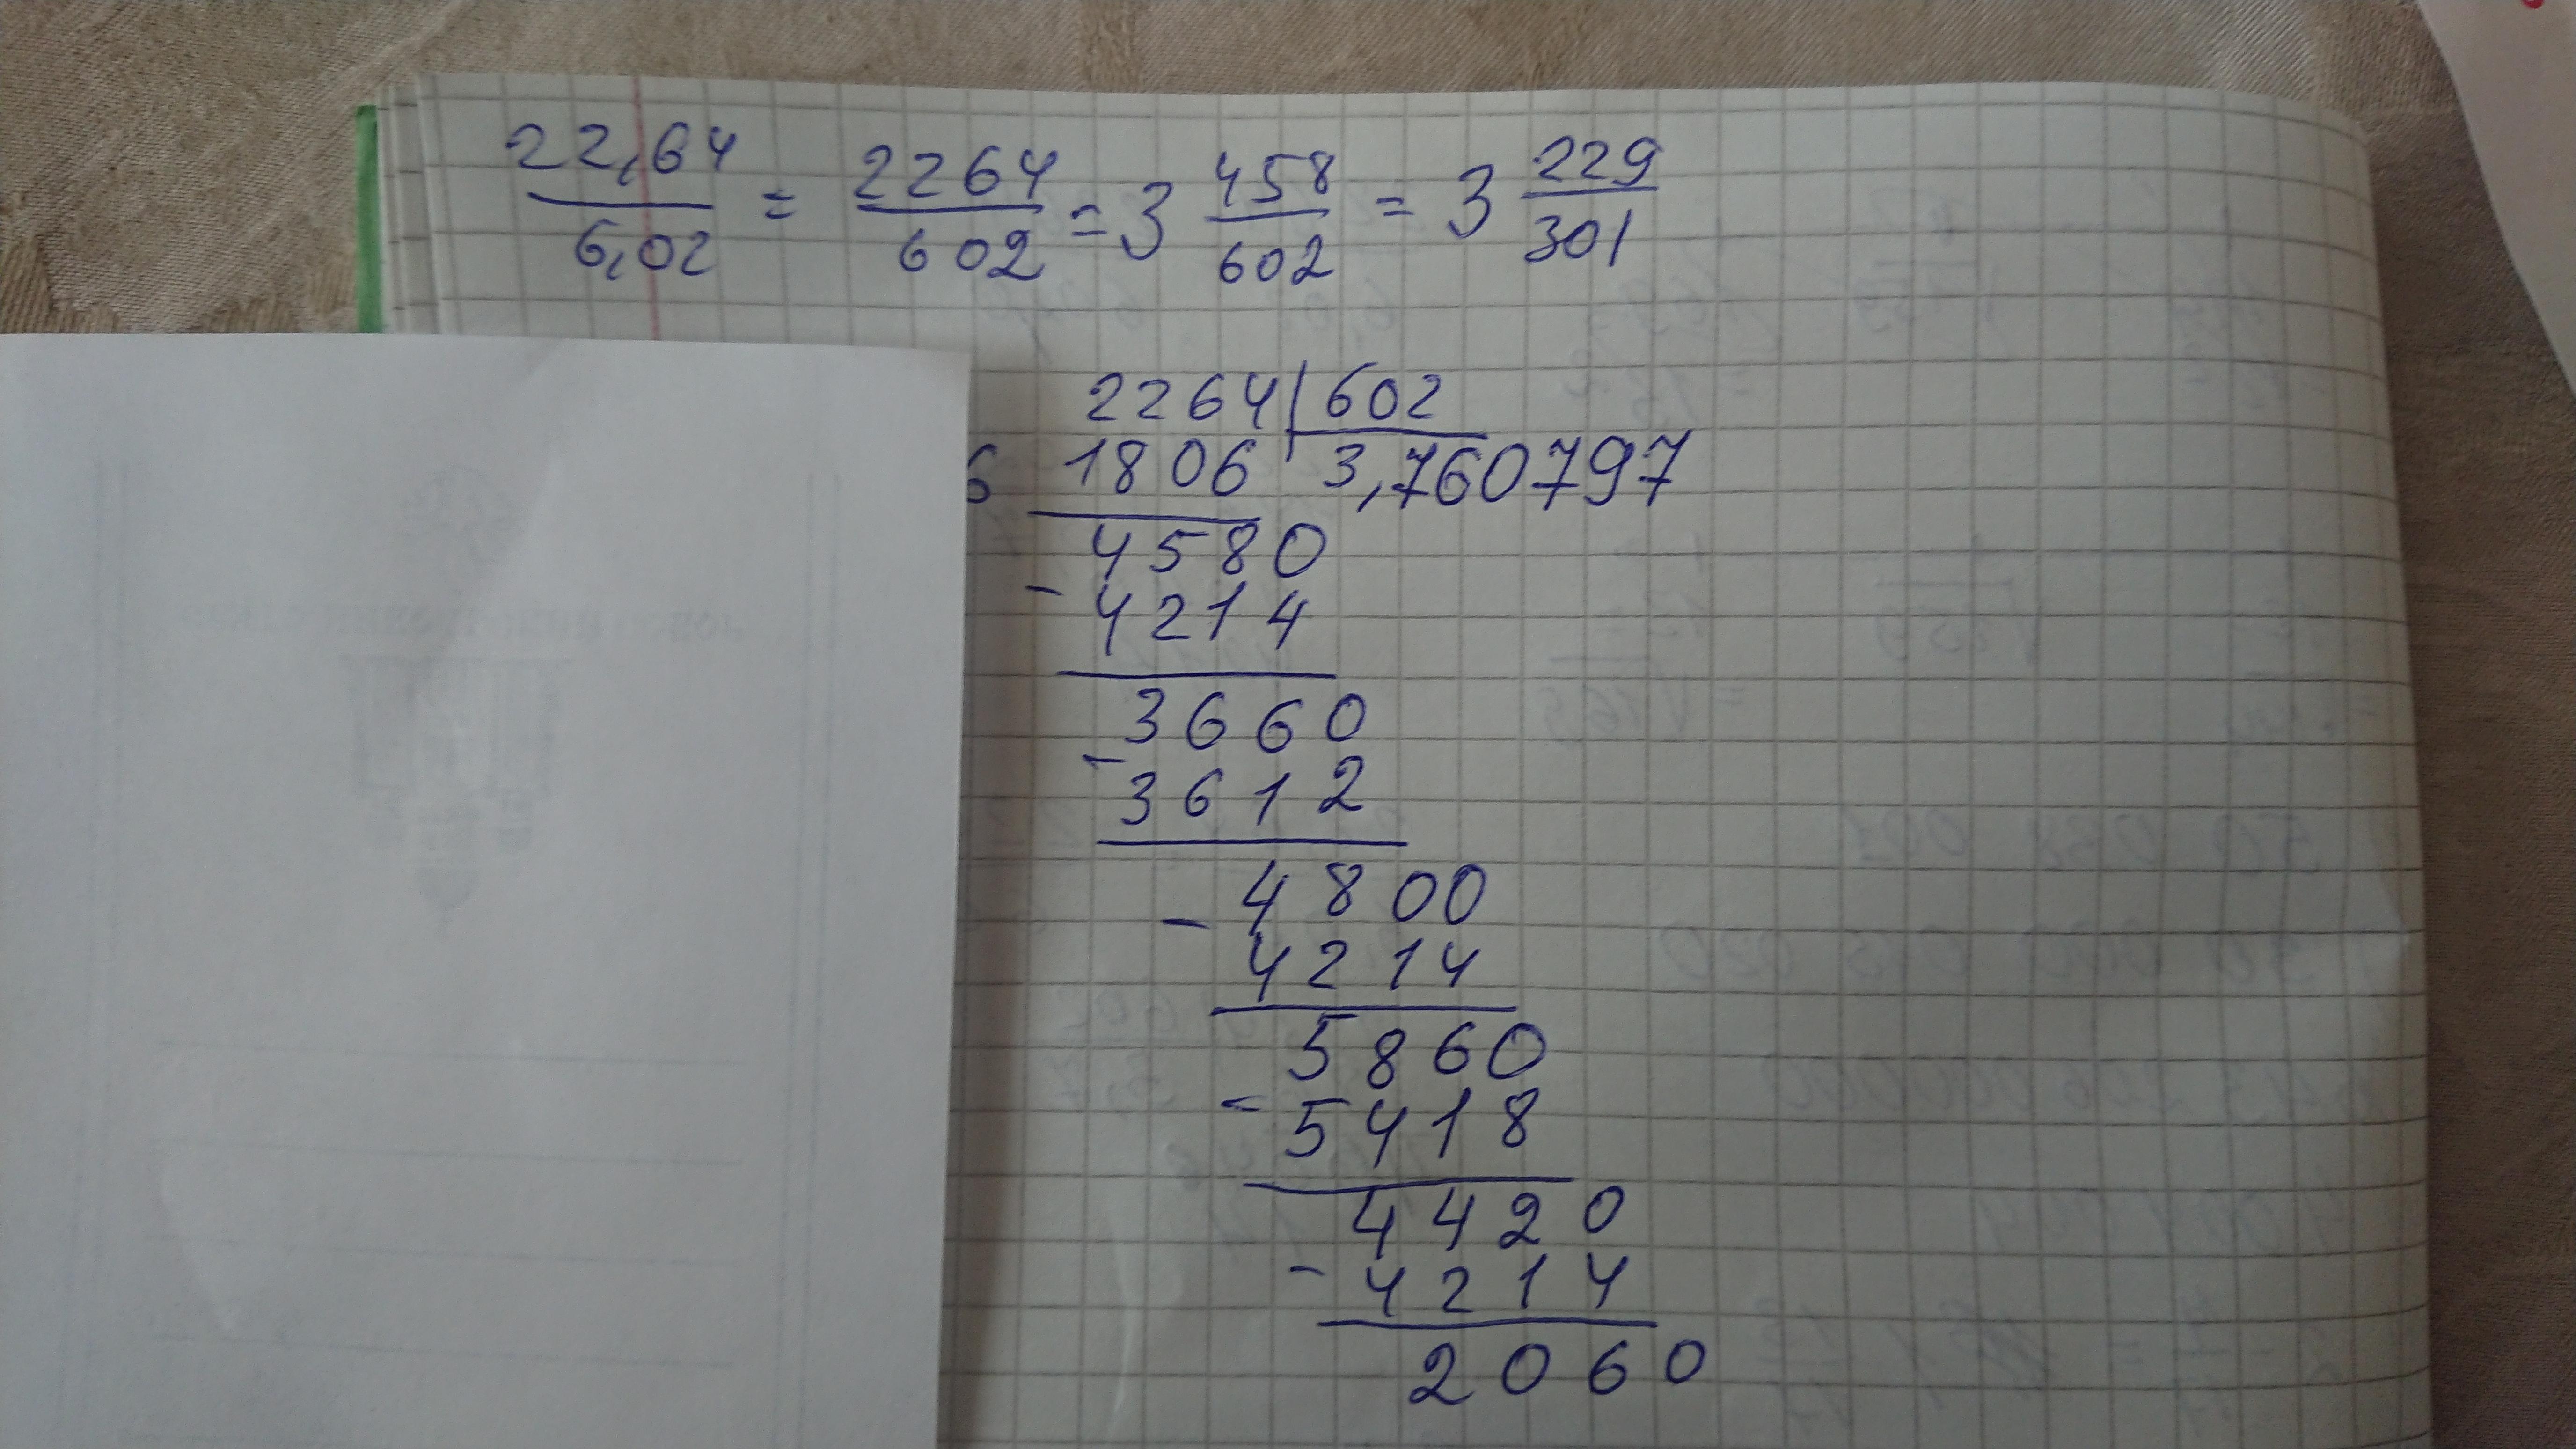 22,64/6,02 = 2264/602 = 3 458/602 = 3 229/301
2264 | 602
6 1806 3,760797
4580
- 4214
3660
- 3612
- 4800
4214
5860
- 5418
4420
- 4214
2060